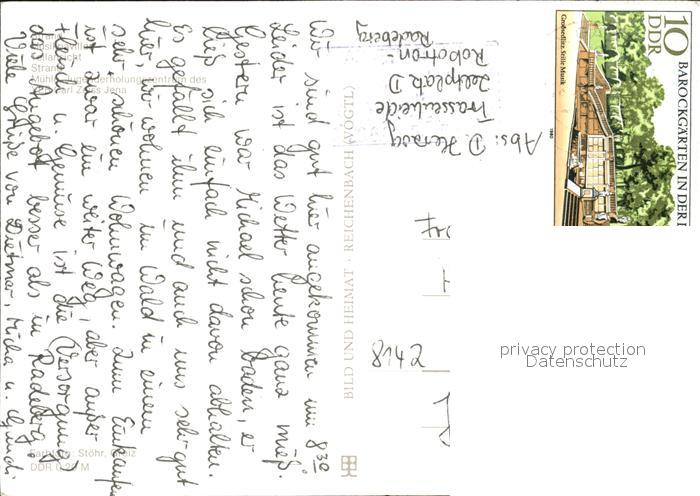 Wir sind gut hier angekommen um 8.30
Leider ist das Wetter heute ganz mieß.
Gestern war Michael schon baden, er
ließ sich einfach nicht davon abhalten.
Es gefällt ihm und auch uns sehr gut
hier, wir wohnen im Wald in einem
sehr schönen Wohnwagen. Zum Einkaufen
ist zwar ein weiter Weg, aber außer
Fleisch u. Gemüse ist die Versorgung,
das Angebot besser als in Radeberg
Viele Grüße von Dietmar, Micha u. Gundi.
Strand
Mühle
erholungszentrum des
Carl Zeiss Jena
Stöhr, Greiz
DDR 0,20 M
BILD UND HEIMAT · REICHENBACH (VOGTL.)
Abs: D. Herzog
Trassenheide
Zeltplatz D
Robotron-
Radeberg
2418
10
DDR
BAROCKGÄRTEN IN DER
Großsedlitz, Stille Musik
1980
privacy protection
Datenschutz